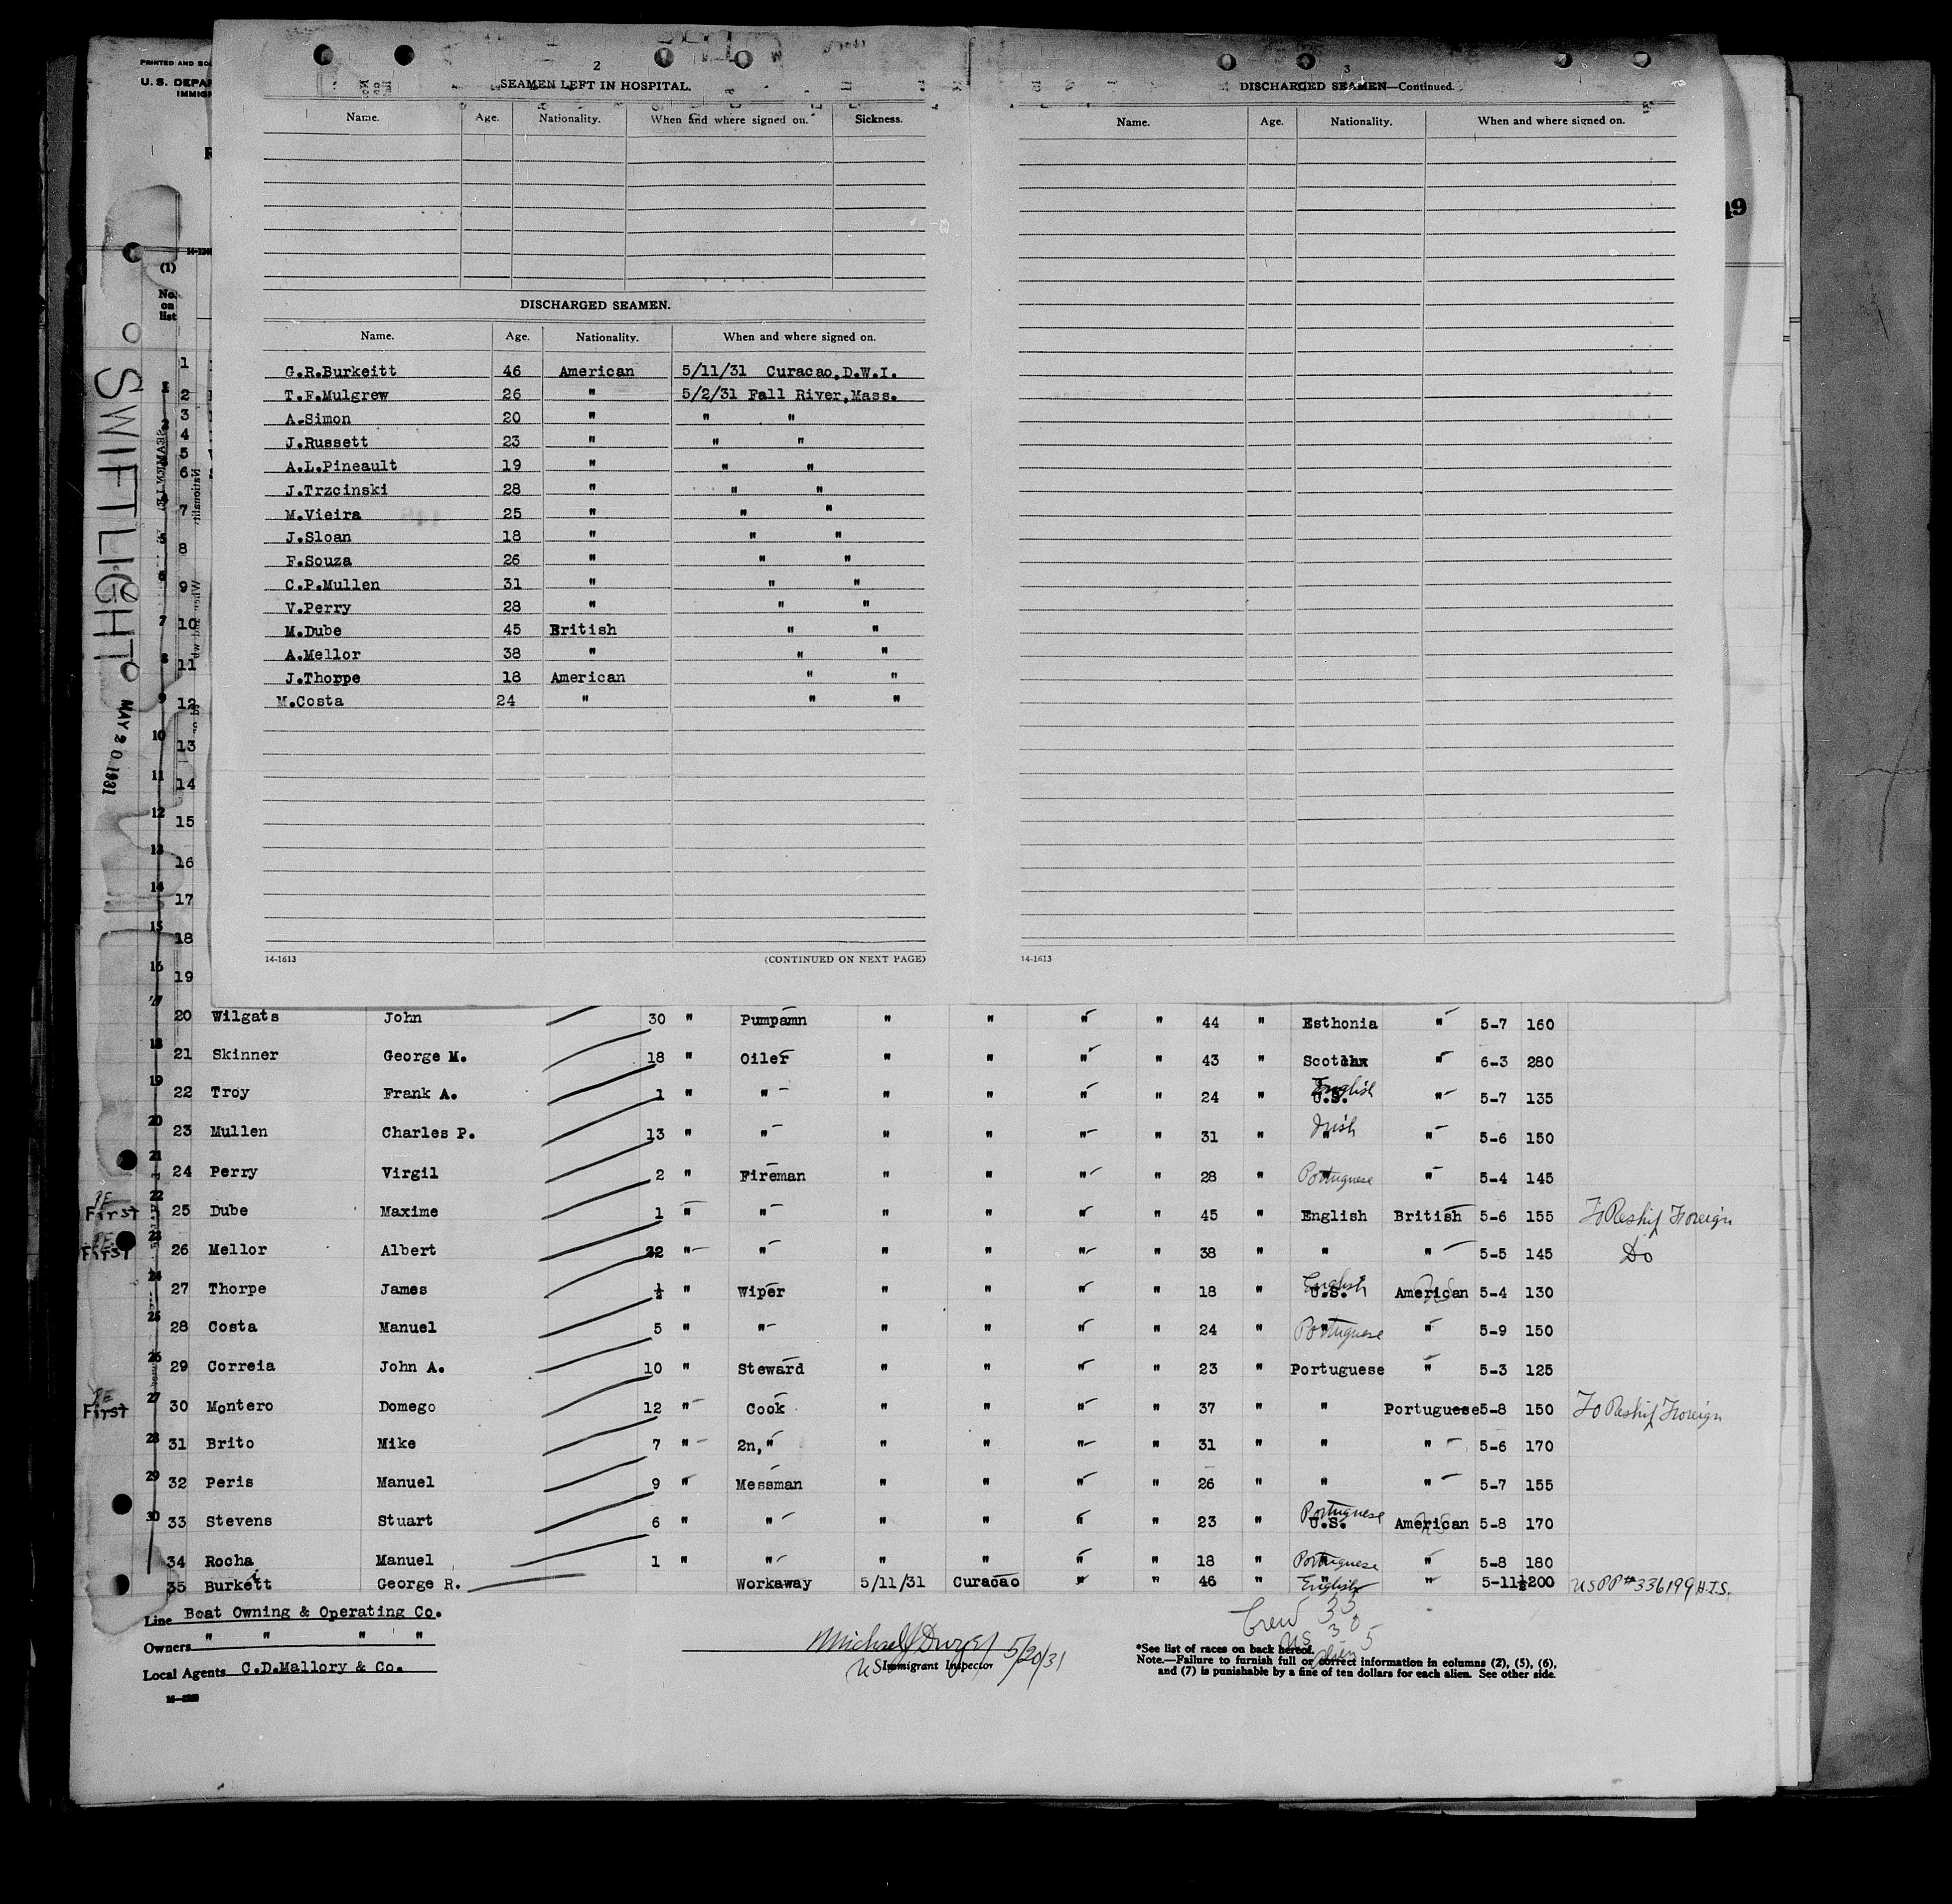 PRINTED AND SO
U.S. DEPAR
IMMIG
2
SEAMEN LEFT IN HOSPITAL.
Name. Age. Nationality. When and where signed on. Sickness.
DISCHARGED SEAMEN.
Name. Age. Nationality. When and where signed on.
G.R.Burkeitt 46 American 5/11/31 Curacao,D.W.I.
T.F.Mulgrew 26 " 5/2/31 Fall River,Mass.
A.Simon 20 " " "
J.Russett 23 " " "
A.L.Pineault 19 " " "
J.Trzcinski 28 " " "
M.Vieira 25 " " "
J.Sloan 18 " " "
F.Souza 26 " " "
C.P.Mullen 31 " " "
V.Perry 28 " " "
M.Dube 45 British " "
A.Mellor 38 " " "
J.Thorpe 18 American " "
M.Costa 24 " " "
14-1613 (CONTINUED ON NEXT PAGE)
3
DISCHARGED SEAMEN—Continued.
Name. Age. Nationality. When and where signed on.
14-1613
19
(1)
No.
on
list
SWIFTLIGHT
MAY 20 1931
1
2
3
4
5
6
7
8
9
10
11
12
13
14
15
16
17
18
19
20 Wilgats John 30 " Pumpamn " " " " 44 " Esthonia " 5-7 160
21 Skinner George M. 18 " Oiler " " " " 43 " Scotchx " 6-3 280
22 Troy Frank A. 1 " " " " " " 24 " U.S. English " 5-7 135
23 Mullen Charles P. 13 " " " " " " 31 " " Irish " 5-6 150
24 Perry Virgil 2 " Fireman " " " " 28 " " Portuguese " 5-4 145
First 25 Dube Maxime 1 " " " " " " 45 " English British 5-6 155 To Reship Foreign
First 26 Mellor Albert 22 " " " " " " 38 " " " 5-5 145 Do
27 Thorpe James ½ " Wiper " " " " 18 " U.S. English American 5-4 130
28 Costa Manuel 5 " " " " " " 24 " " Portuguese " 5-9 150
29 Correia John A. 10 " Steward " " " " 23 " Portuguese " 5-3 125
First 30 Montero Domego 12 " Cook " " " " 37 " " Portuguese 5-8 150 To Reship Foreign
31 Brito Mike 7 " 2n," " " " " 31 " " " 5-6 170
32 Peris Manuel 9 " Messman " " " " 26 " " " 5-7 155
33 Stevens Stuart 6 " " " " " " 23 " U.S. Portuguese American 5-8 170
34 Rocha Manuel 1 " " " " " " 18 " " Portuguese " 5-8 180
35 Burkett George R. Workaway 5/11/31 Curacao " " 46 " " English " 5-11½ 200 US PP # 336199 H.I.S.
Line Boat Owning & Operating Co.
Owners " " " "
Local Agents C.D.Mallory & Co.
Michael J Dwyer 5/20/31
US Immigrant Inspector
Crew 35
US 30
Alien 5
*See list of races on back hereof.
Note.—Failure to furnish full or correct information in columns (2), (5), (6),
and (7) is punishable by a fine of ten dollars for each alien. See other side.